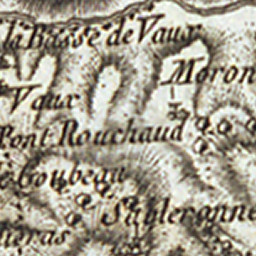 la Basse de Vaux
Moron
Vaux
Pont Rouchaud
Goubeau
Sableronne
ieras